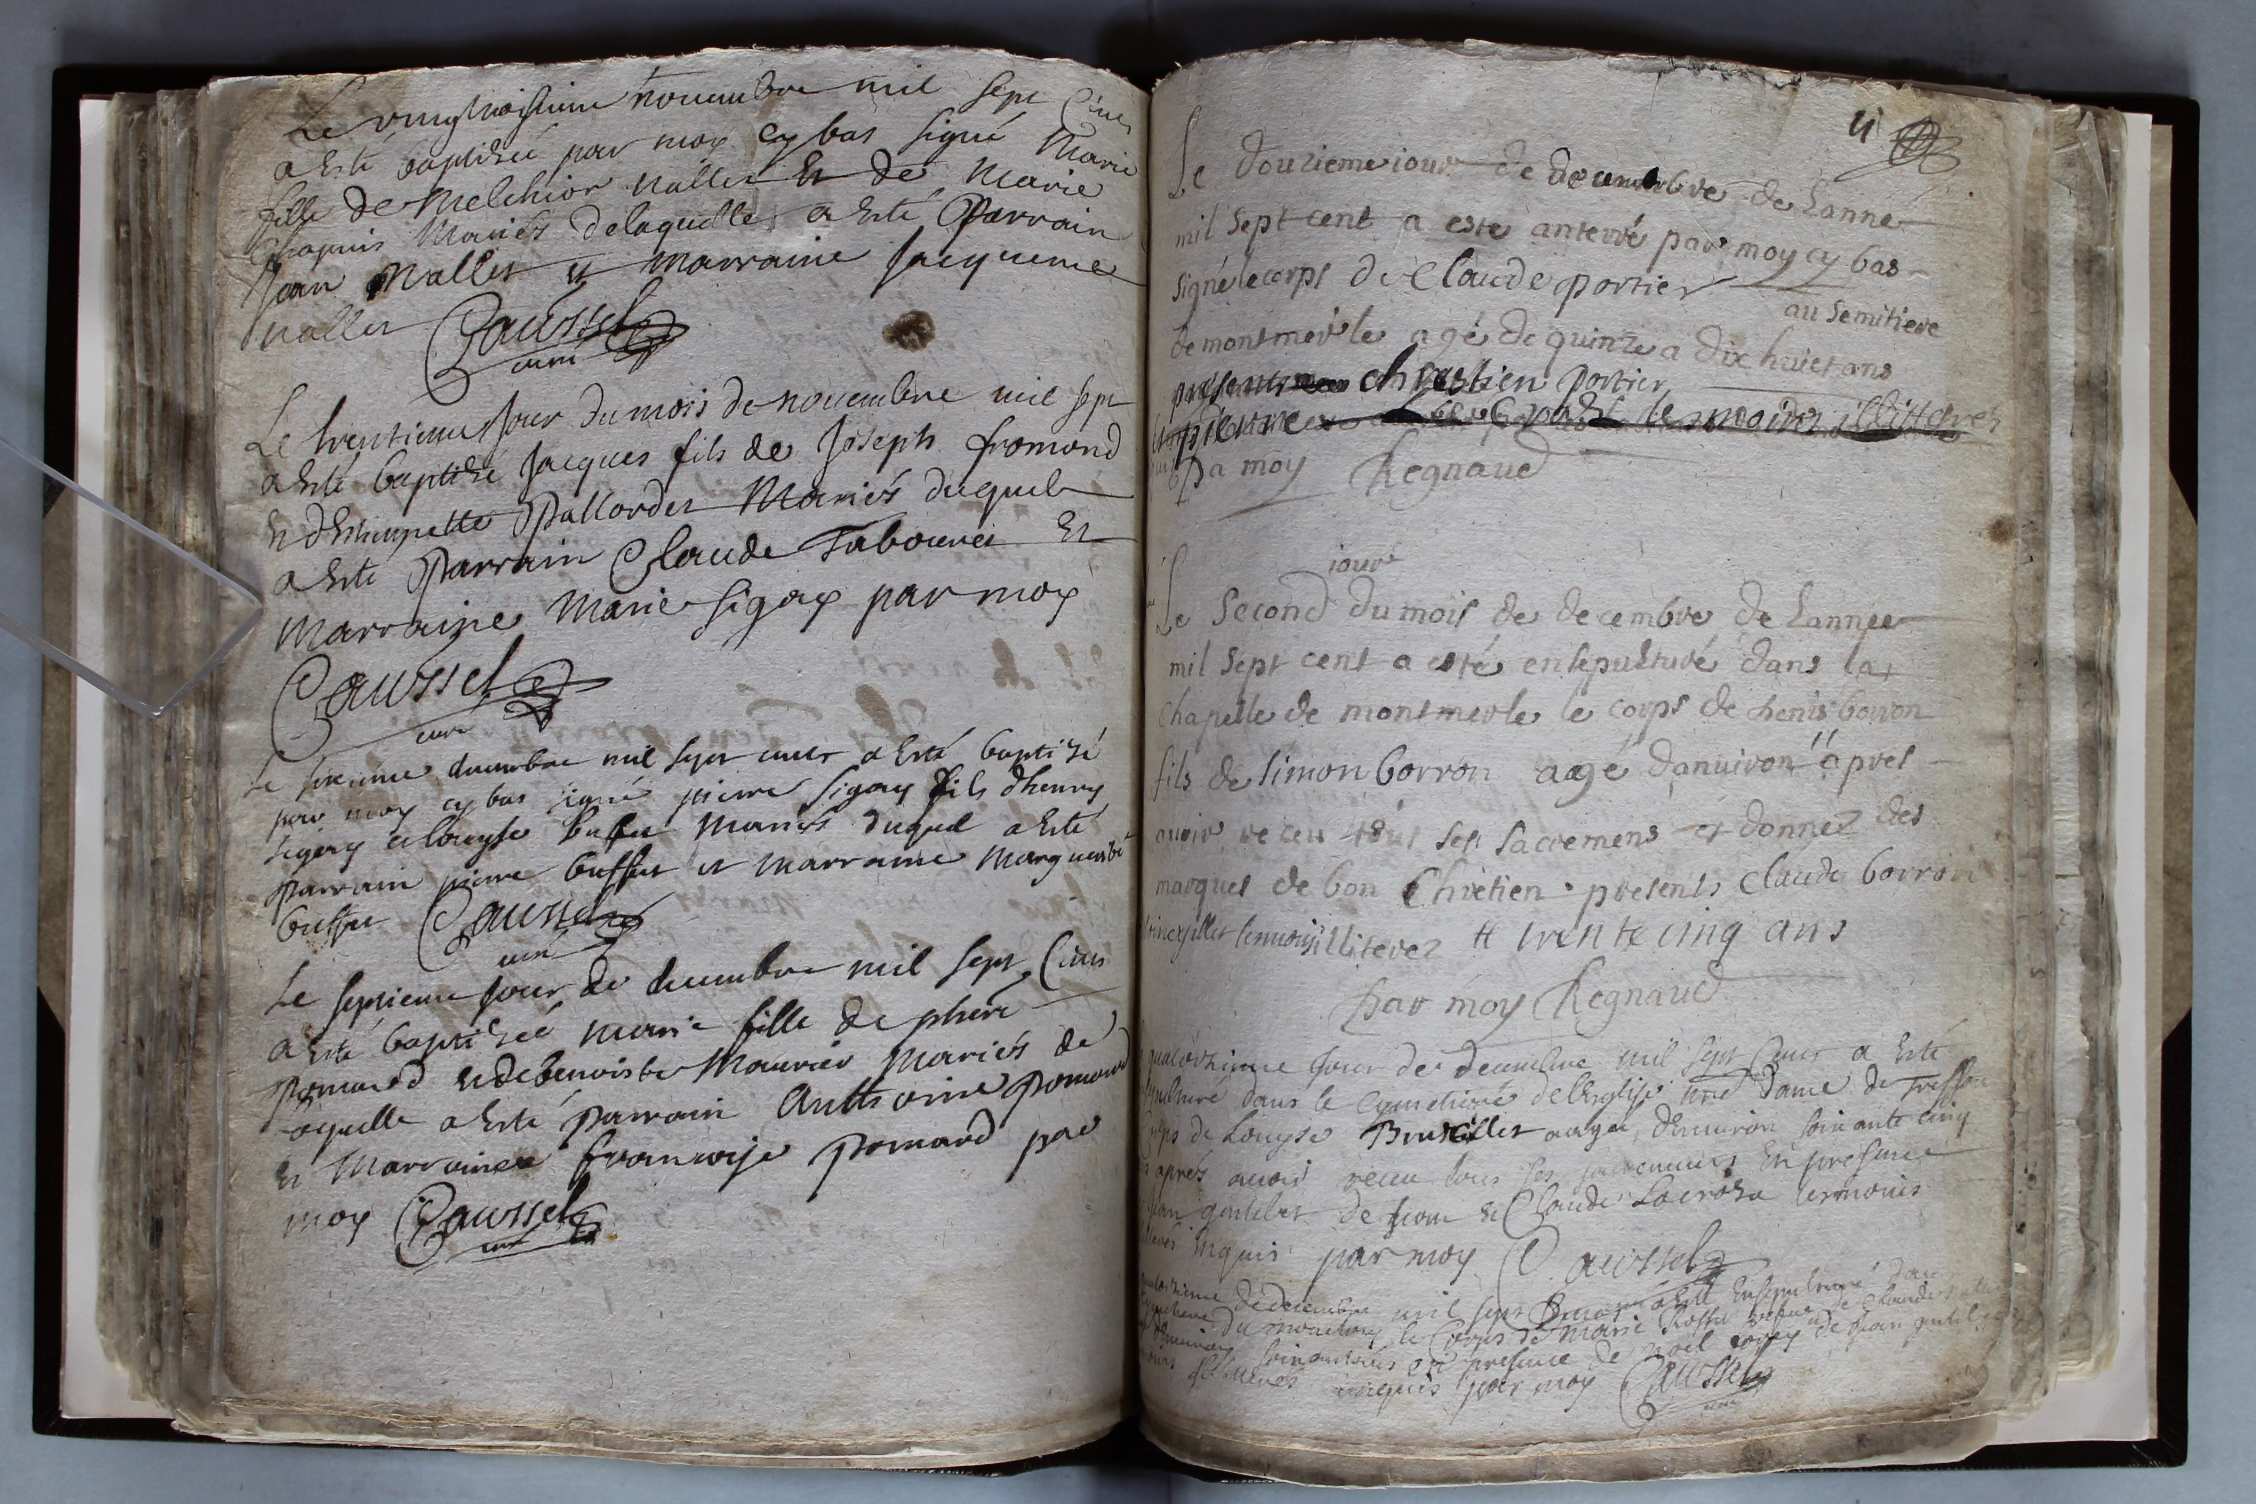 Le vingtroisieme novembre mil sept Cents
a Esté baptisée par moy cy bas signé Marie
fille de Melchior nallet Et de Marie
Chapuis Mariés delaquelle a Esté Parrain
Jean Nallet et marraine Jacqueme
nallet Caussel
curé
Le trentieme Jour du mois de novembre mil sept
a Esté baptisé Jacques fils de Joseph fromond
Et dEstiennette Pallordet Mariés duquel
a Esté Parrain Claude Tabouret Et
Marraine Marie sigoy par moy
Caussel
curé
Le sixieme decembre mil sept cents a Esté baptisé
par moy cy bas signé pierre sigoy fils dhenry
sigoy et louyse Mariés duquel a Esté
parrain pierre buffet et marraine Marguerite
Caussel
curé
Le septieme Jour de decembre mil sept Cents
a Esté baptisée marie fille de
pomard et debenoiste Mariés de
laquelle a Esté parrain Anthoine pomard
Et Marraine francoise pomard par
moy Caussel
curé
Le douzieme iour de decembre de Lanne
mil sept cent a esté anterré par moy cy bas
signé le corps de Claude portier
au semitiere
de montmerle agé de quinze a dix huict ans
presents chrestien portier
pierre temoins illitteres
Pa moy Regnaud
iour
Le second du mois de decembre de Lannee
mil sept cent a esté ensepulturé dans la
chapelle de montmerle le corps de borron
fils de simon borron agé danuiron # apres
auoir receu tous ses sacremens et donnez des
marques de bon Chretien presents Claude borron
illiterez # trente cinq ans
par moy Regnaud
quatorzieme Jour de decembre mil sept Cents a Esté
dans le Cymetiere delEglise nre dame de
corps de Louyse agée denuiron soixante cinq
apres auoir receu tous ses sacremens En presence
de Claude temoins
inquis par moy Caussel
de decembre mil sept Cents a Esté Ensepulturé dans
du le Corps de Marie de Claude
soixante en presence de noel de Jean
enquis par moy Caussel